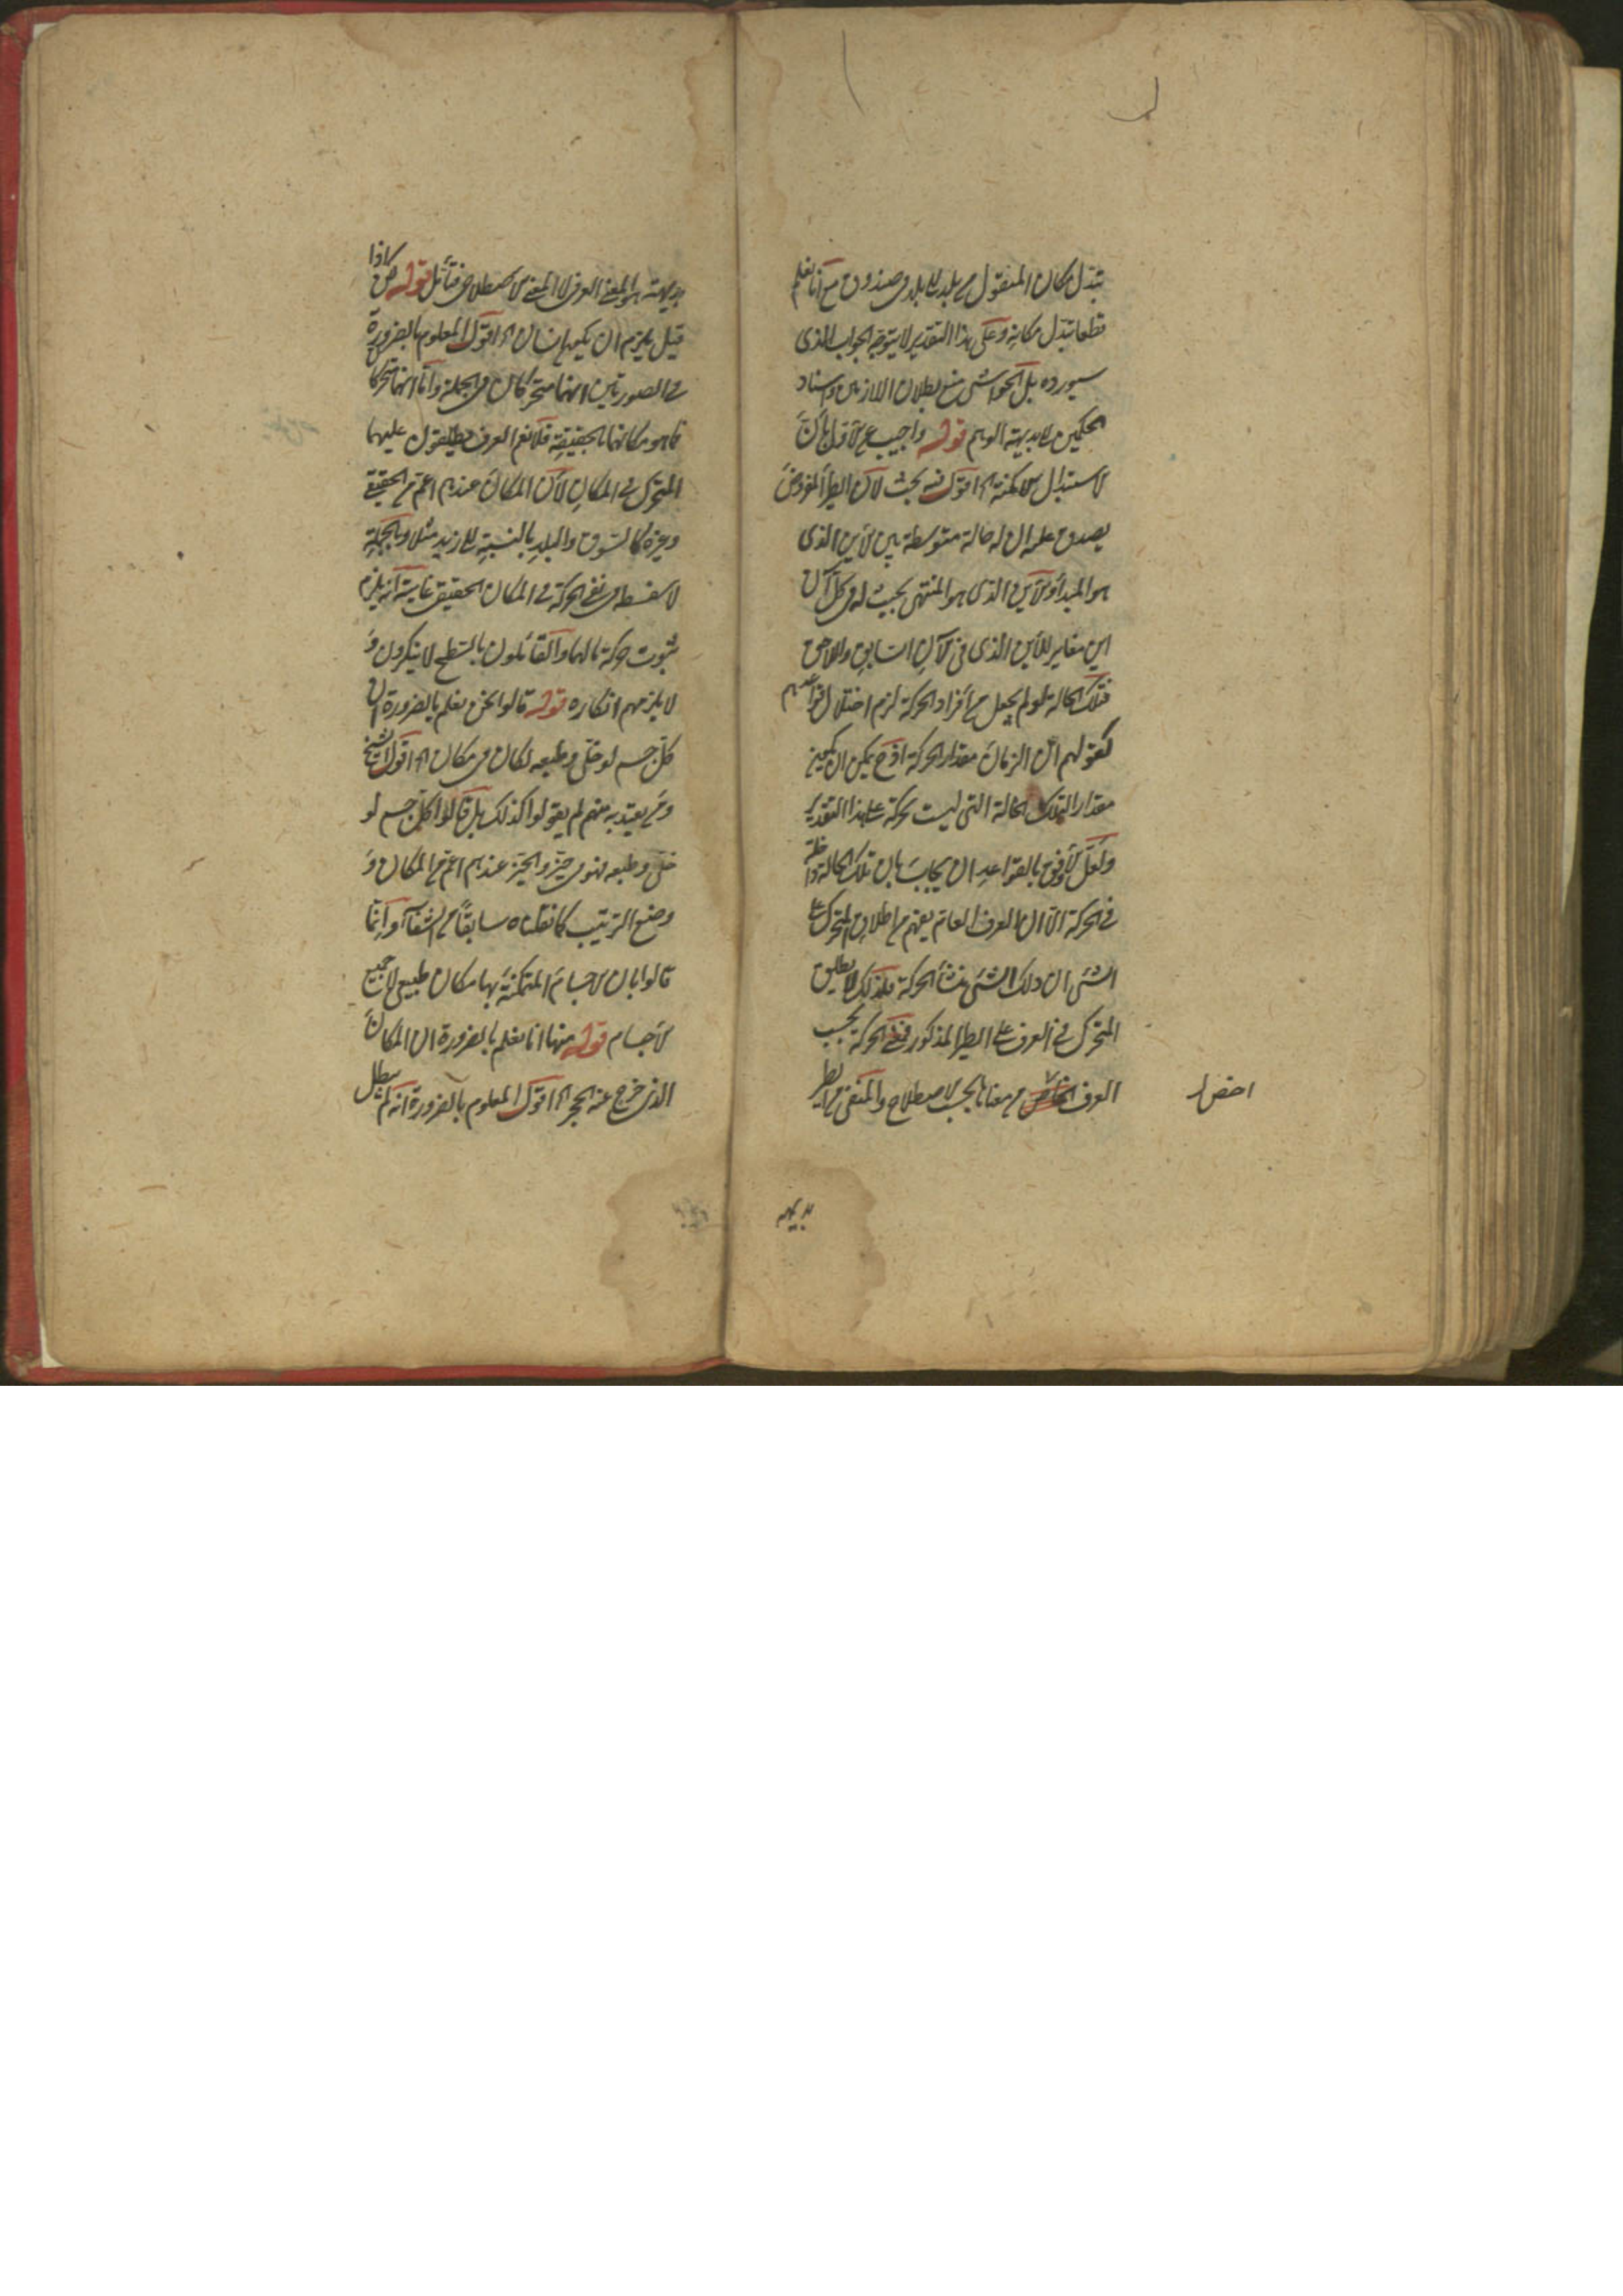 تبدل مكان المنقول من بلد الى بلد فى صندوق مع انا نعلم
قطعا تبدل مكانه وعلى هذا التقدير لا يتوجه الجواب الذى
سيورده بل الحواشى منع بطلان اللازمين واسناد
الحكمين الى بديهة الوهم قوله واجيب عن الاول بأن
الاستبدال الامكنة اه اقول فيه بحث لان الطير المفروض
يصدق عليه ان له حالة متوسطة بين الاين الذى
هو المبدأ والاين الذى هو المنتهى بحيث له فى كل آن
اين مغاير للأين الذى فى الآن السابق واللاحق
فتلك الحالة لو لم يجعل من أفراد الحركة لزم اختلال قواعدهم
كقولهم ان الزمان مقدار الحركة اذ ح يمكن ان يكون
مقدارا لتلك الحالة التى ليست بحركة على هذا التقدير
ولعل الاوفق بالقواعد ان يجاب بان تلك الحالة داخلة
فى الحركة الا ان العرف العام يفهم من اطلاق المتحرك على
الشئ ان ذلك الشئ منشأ الحركة فلذلك لا يطلق
المتحرك فى العرف على الطير المذكور فمعنى الحركة بحسب
العرف اخص من معناها بحسب الاصطلاح والمنفى من الطير
بديهة
بديهة هو المعنى العرفى لا المعنى الاصطلاحى فتأمل قوله كذا
قيل يلزم ان يكون انسان اه اقول المعلوم بالضرورة
فى الصورتين انهما متحركان فى الجملة واما انهما تحركا
فيما هو مكانهما بالحقيقة فلا نعم العرف يطلقون عليهما
المتحرك فى المكان لان المكان عندهم اعم من الحقيقى
وغيره كالسوق والبلد بالنسبة الى زيد مثلا وبالجملة
لا سفسطة فى نفى الحركة فى المكان الحقيقى غايته انه يلزم
ثبوت حركة ما لهما والقائلون بالسطح لا ينكرون و
لا يلزمهم انكاره قوله قالوا نحن نعلم بالضرورة ان
كل جسم لو خلى وطبعه لكان فى مكان اه اقول الشيخ
ومن يعتد به منهم لم يقولوا كذلك بل قالوا كل جسم لو
خلى وطبعه فهو فى حيز والحيز عندهم اعم من المكان و
وضع الترتيب كما نقلناه سابقا من الشفآء وانما
قالوا بان الاجسام المتمكنة بها مكان طبيعى لا جميع
الاجسام قوله منها انا نعلم بالضرورة ان المكان
الذى خرج عنه الحجر اه اقول المعلوم بالضرورة انه لم يبطل